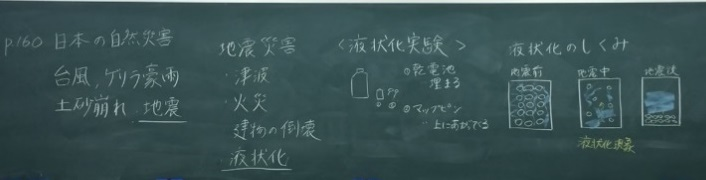 p.160 日本の自然災害
台風、ゲリラ豪雨
土砂崩れ、地震
地震災害
・津波
・火災
建物の倒壊
液状化
〈液状化実験〉
◎乾電池
埋まる
◎マップピン
・上にあがってくる
液状化のしくみ
地震前
地震中
地震後
液状化現象